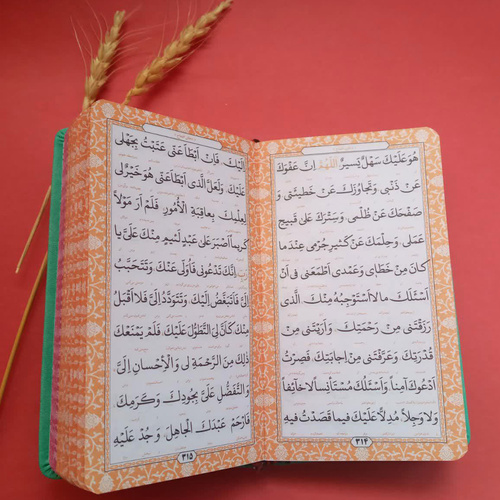 هُوَ عَلَيْكَ سَهْلٌ يَسيرٌ اَللّهُمَّ اِنَّ عَفْوَكَ
عَنْ ذَنْبى وَتَجاوُزَكَ عَنْ خَطيئَتى وَ
صَفْحَكَ عَنْ ظُلْمى وَسَتْرَكَ عَلى قَبيحِ
عَمَلى وَحِلْمَكَ عَنْ كَثيرِ جُرْمى عِنْدَ ما
كانَ مِنْ خَطائ وَعَمْدى اَطْمَعَنى فى اَنْ
اَسْئَلَكَ مالا اَسْتَوْجِبُهُ مِنْكَ الَّذى
رَزَقْتَنى مِنْ رَحْمَتِكَ وَاَرَيْتَنى مِنْ
قُدْرَتِكَ وَعَرَّفْتَنى مِنْ اِجابَتِكَ فَصِرْتُ
اَدْعُوكَ آمِناً وَاَسْئَلُكَ مُسْتَاْنِساً لاخائِفاً
وَلا وَجِلاً مُدِلاًّ عَلَيْكَ فيما قَصَدْتُ فيهِ
٣١٤
اِلَيْكَ فَاِنْ اَبْطَاَ عَنّى عَتَبْتُ بِجَهْلى
عَلَيْكَ وَلَعَلَّ الَّذى اَبْطَاَ عَنّى هُوَ خَيْرٌ لى
لِعِلْمِكَ بِعاقِبَةِ الْاُمُورِ فَلَمْ اَرَ مَوْلاً
كَريماً اَصْبَرَ عَلى عَبْدٍ لَئيمٍ مِنْكَ عَلَىَّ يا
رَبِّ اِنَّكَ تَدْعُونى فَاُوَلّى عَنْكَ وَتَتَحَبَّبُ
اِلَىَّ فَاَتَبَغَّضُ اِلَيْكَ وَتَتَوَدَّدُ اِلَىَّ فَلا اَقْبَلُ
مِنْكَ كَاَنَّ لِىَ التَّطَوُّلَ عَلَيْكَ فَلَمْ يَمْنَعْكَ
ذلِكَ مِنَ الرَّحْمَةِ لى وَالْاِحْسانِ اِلَىَّ
وَالتَّفَضُّلِ عَلَىَّ بِجُودِكَ وَكَرَمِكَ
فَارْحَمْ عَبْدَكَ الْجاهِلَ وَجُدْ عَلَيْهِ
٣١٥